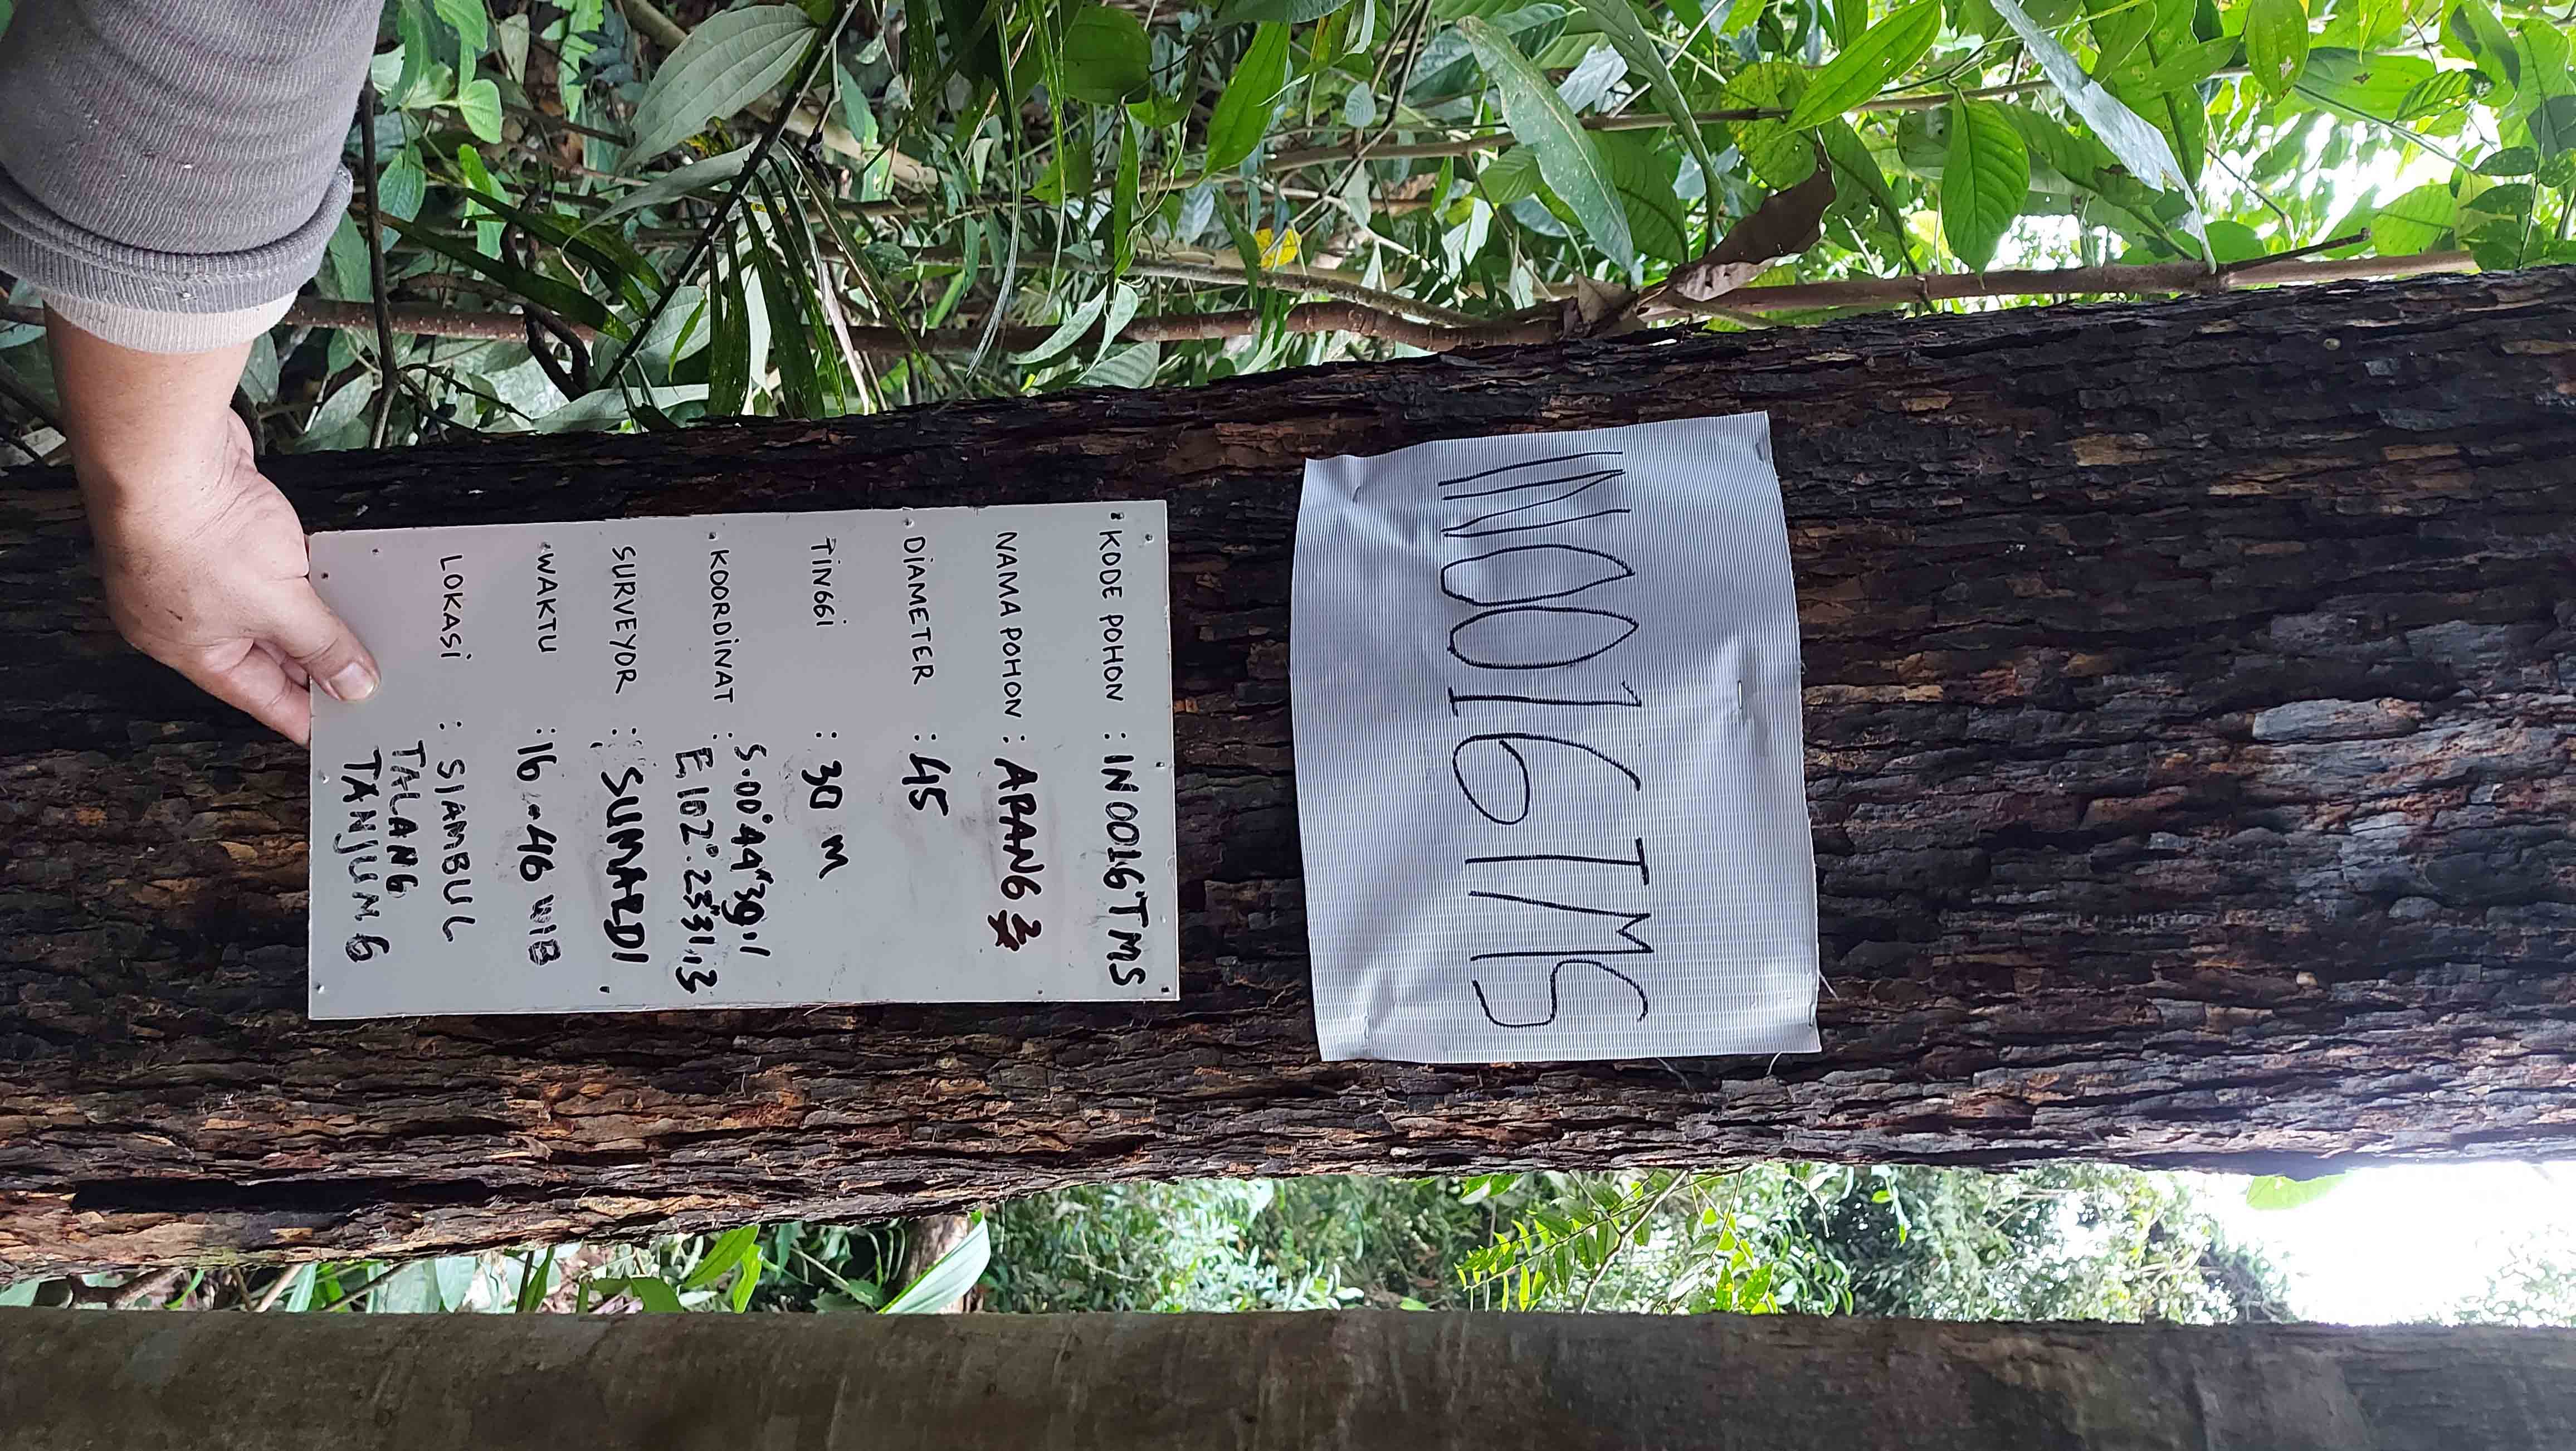 IN0016TMS
KODE POHON : IN0016TMS
NAMA POHON : ARANG
DIAMETER : 45
TINGGI : 30 M
KOORDINAT : S.00°44"39.1
E 102°.23"31.13
SURVEYOR : SUMARDI
WAKTU : 16 -46 WIB
LOKASI : SIAMBUL
TALANG
TANJUNG